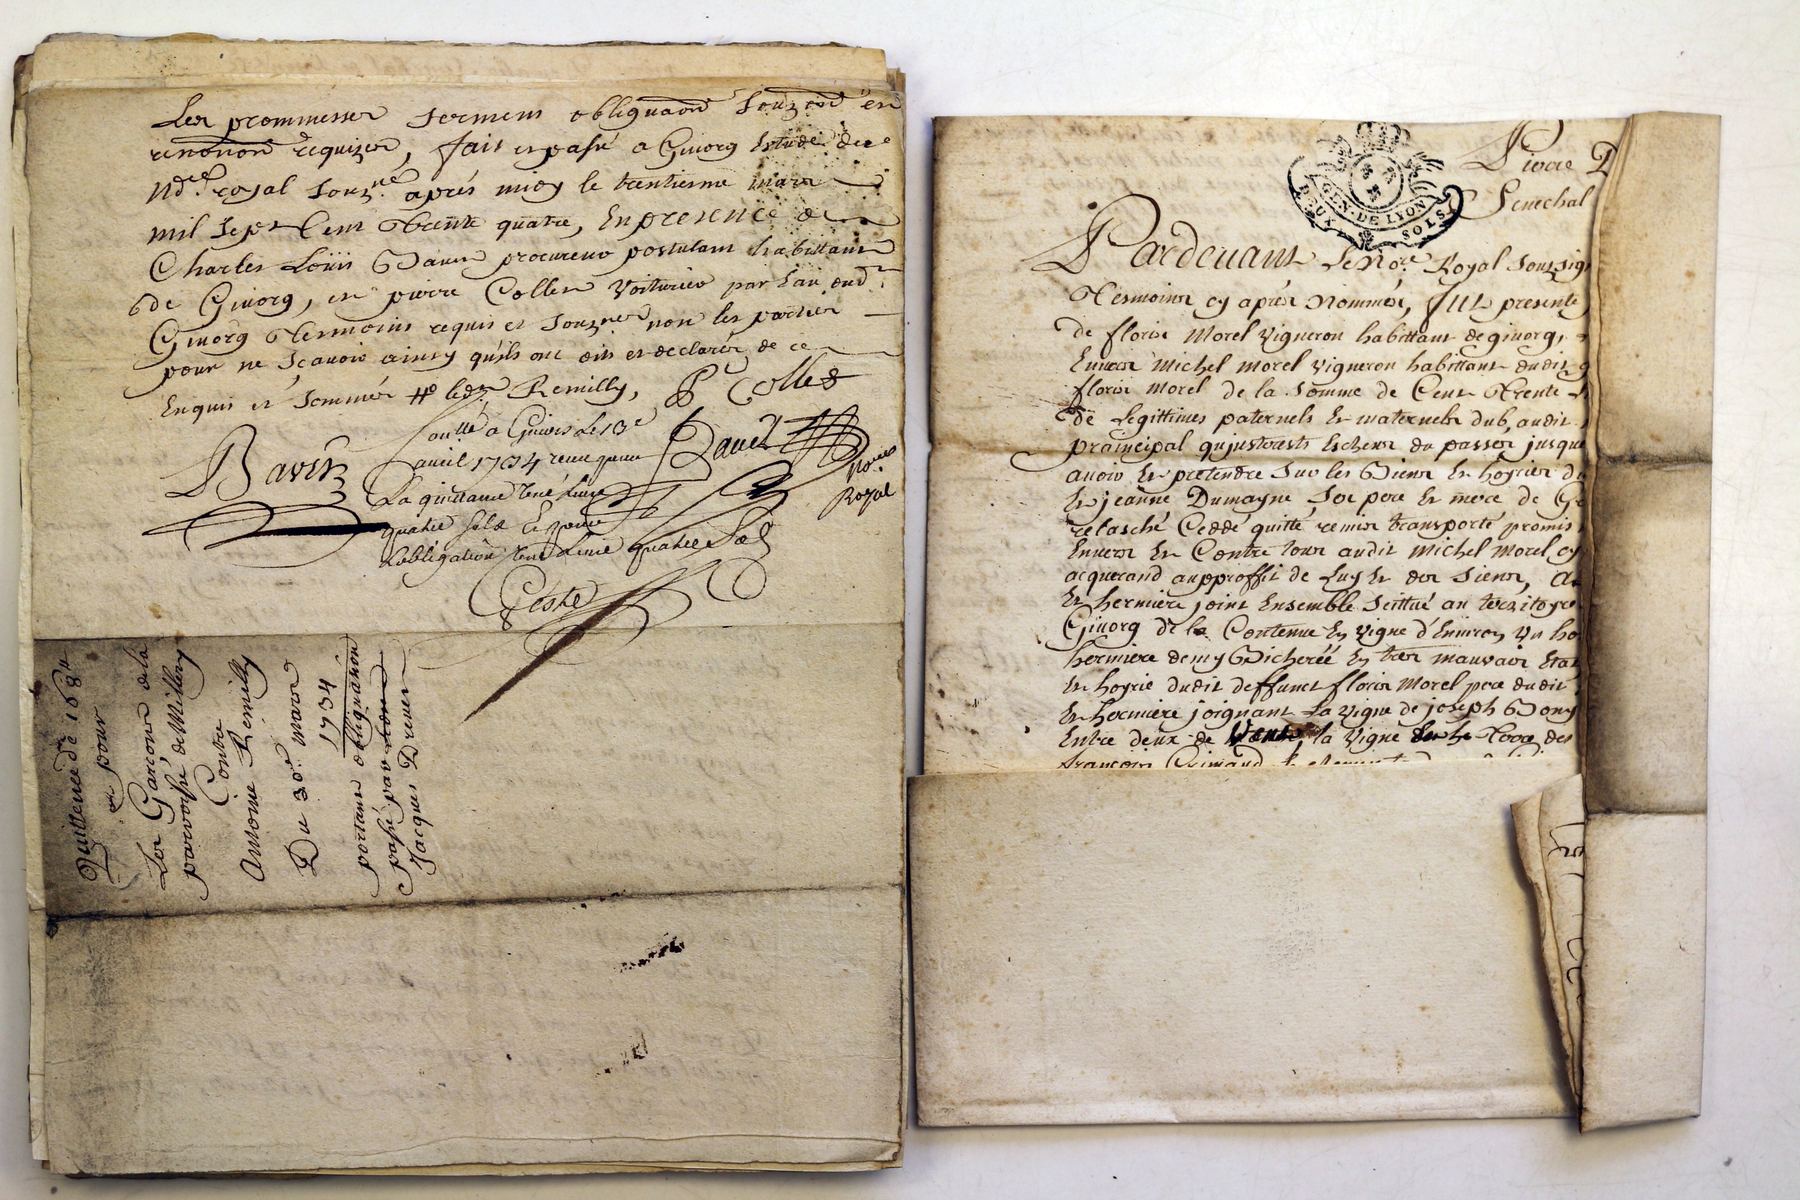 Les prommesses sermens obligaon Souz on en
renonon requizes, fait et passé a Givorg Estude de
Nore royal Souzné. aprés midy le trentiesme mars
mil Sept Cent Trente quatre, En presence de
Charles Loüis Baver procureur postulant habittant
de Givorg, et pierre Collet Voiturier par Eau dud.
Givorg Tesmoins requis et Souznes non les parties
pour ne Scavoir ainsy qu'ils ont dit et declarés de ce
Enquis et Sommés ledt Remilly, P Collet
Baver
Baver
nore
Royal
a Givors Le 13e
avril 1734 receu pour
La quittance
quatre Sols
Lobligation quatre Sols
Coste
Quittence de 168#
pour
Les Garcons de la
parroisse de Millery
Contre
Antoine Remilly
Du 30e mars
1734
portant obligation
passé par
Jacques Drevet
GEN. DE LYON
DEUX SOLS
Pierre D
Senechal
Pardevant Le Nore. Royal Souzsig
Tesmoins cy aprés Nommés, fut presente
de floris Morel Vigneron habittant de givorg,
Envers Michel Morel Vigneron habittant dudit g
floris Morel de la Somme de Cent Trente
de Legittimes paternels Et maternels dub audit
praincipal qu'justerests Escheus du passér jusque
avoir Et pretendre Sur les Biens Et hoyries du
Et jeanne Dumayne Ses pere Et mere de G
relasché Cedde quitté remis transporté promis
Envers Et Contre tous audit Michel Morel cy
acquerand au proffit de Luy Et des Siens,
Et hermiere joint Ensemble Scittué au territoyre
Givorg de la Contenue En Vigne d'Environ Un ho
hermiere demy Bicherée En tres mauvais Etat
Et hoyrie dudit deffunct floris Morel pere dudit
Et hermiere joignant La Vigne de joseph Bony
Entre deux de la Vigne Terre des
françois